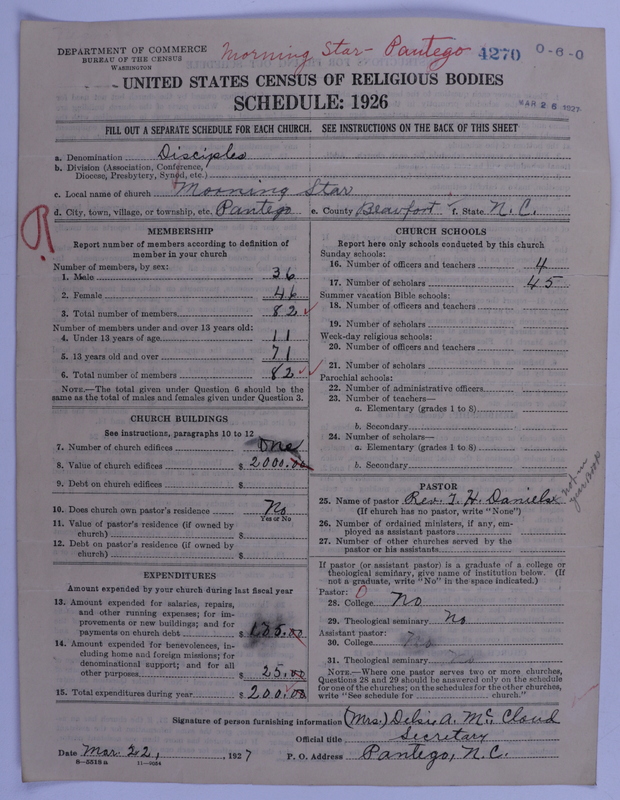 DEPARTMENT OF COMMERCE
BUREAU OF THE CENSUS
WASHINGTON
Morning Star - Pantego
4270
0-6-0
UNITED STATES CENSUS OF RELIGIOUS BODIES
SCHEDULE: 1926
MAR 26 1927
FILL OUT A SEPARATE SCHEDULE FOR EACH CHURCH. SEE INSTRUCTIONS ON THE BACK OF THIS SHEET
a. Denomination Disciples
b. Division (Association, Conference, Diocese, Presbytery, Synod, etc.)
c. Local name of church Morning Star
d. City, town, village, or township, etc. Pantego e. County Beaufort f. State N.C.
MEMBERSHIP
Report number of members according to definition of
member in your church
Number of members, by sex:
1. Male 36
2. Female 46
3. Total number of members 82
Number of members under and over 13 years old:
4. Under 13 years of age 11
5. 13 years old and over 71
6. Total number of members 82
NOTE.—The total given under Question 6 should be the
same as the total of males and females given under Question 3.
CHURCH BUILDINGS
See instructions, paragraphs 10 to 12
7. Number of church edifices One
8. Value of church edifices $ 2000.00
9. Debt on church edifices $
10. Does church own pastor's residence No
Yes or No
11. Value of pastor's residence (if owned by
church) $
12. Debt on pastor's residence (if owned by
church) $
EXPENDITURES
Amount expended by your church during last fiscal year
13. Amount expended for salaries, repairs,
and other running expenses; for im-
provements or new buildings; and for
payments on church debt $ 175.00
14. Amount expended for benevolences, in-
cluding home and foreign missions; for
denominational support; and for all
other purposes $ 25.00
15. Total expenditures during year $ 200.00
CHURCH SCHOOLS
Report here only schools conducted by this church
Sunday schools:
16. Number of officers and teachers 4
17. Number of scholars 45
Summer vacation Bible schools:
18. Number of officers and teachers
19. Number of scholars
Week-day religious schools:
20. Number of officers and teachers
21. Number of scholars
Parochial schools:
22. Number of administrative officers
23. Number of teachers—
a. Elementary (grades 1 to 8)
b. Secondary
24. Number of scholars—
a. Elementary (grades 1 to 8)
b. Secondary
PASTOR
25. Name of pastor Rev. J. H. Daniels
not in
year book
(If church has no pastor, write "None")
26. Number of ordained ministers, if any, em-
ployed as assistant pastors
27. Number of other churches served by the
pastor or his assistants
If pastor (or assistant pastor) is a graduate of a college or
theological seminary, give name of institution below. (If
not a graduate, write "No" in the space indicated.)
Pastor: 0
28. College No
29. Theological seminary No
Assistant pastor:
30. College No
31. Theological seminary No
NOTE.—Where one pastor serves two or more churches,
Questions 28 and 29 should be answered only on the schedule
for one of the churches; on the schedules for the other churches,
write "See schedule for church."
Signature of person furnishing information (Mrs.) Delsie A. McCloud
Official title Secretary
Date Mar. 22, 1927 P. O. Address Pantego, N.C.
8-5519 a 11-9024